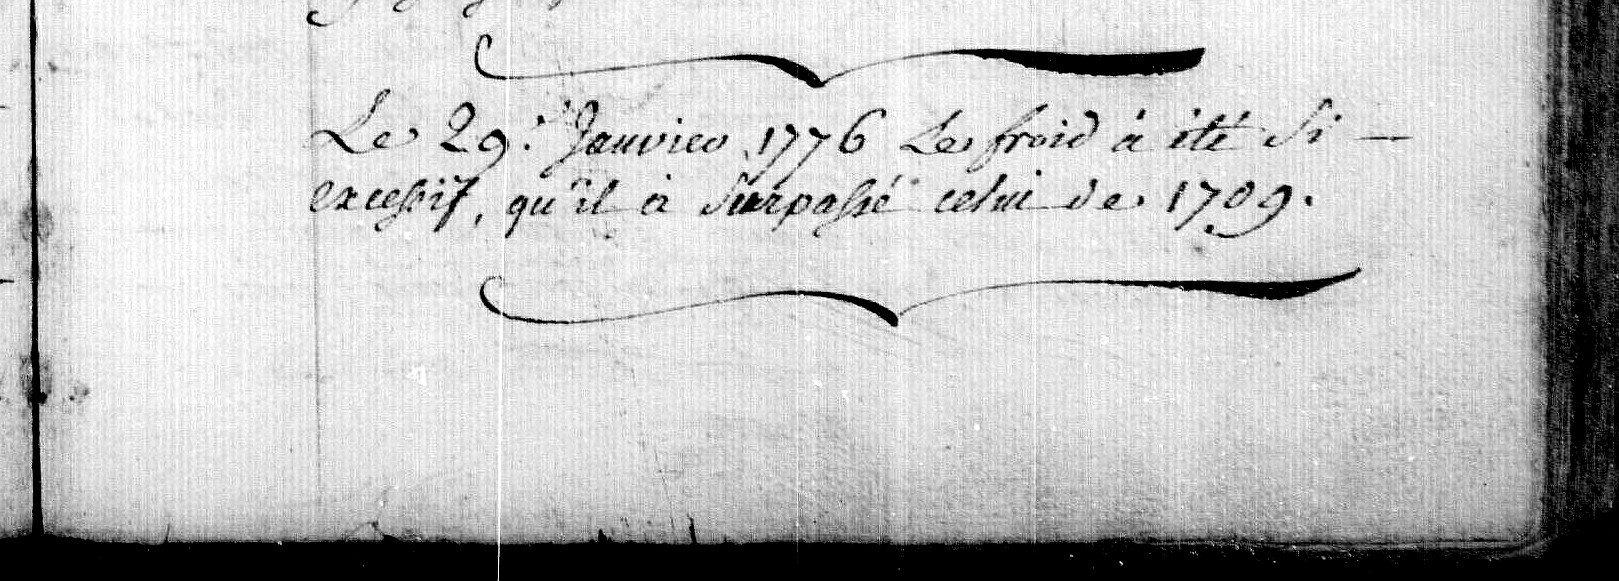 Le 29. Janvier 1776 Le froid à été Si —
excessif, qu'il à Surpassé celui de 1709.